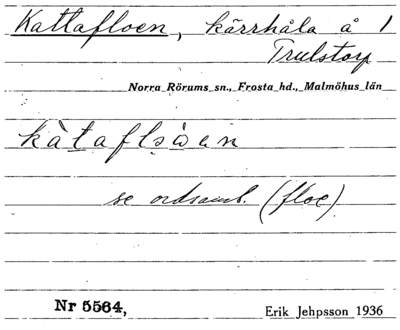 Kattafloen, kärrhåla å 1
Trulstorp
Norra Rörums sn., Frosta hd., Malmöhus län
se ordsaml. (floe)
Nr 5564,
Erik Jehpsson 1936